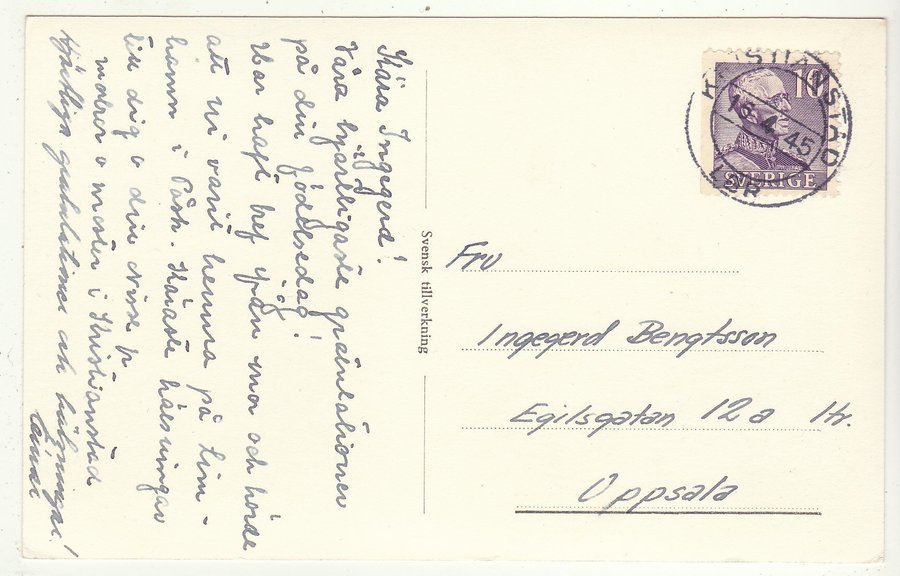 Kära Ingegerd!
Våra hjärtligaste gratulationer
på din födelsedag!
Har haft bref från mor och hörde
att ni varit hemma på Lim-
hamn i Påsk. Käraste hälsningar
till dig o din Nisse fr
morbror o moster i Kristianstad
Hjärtliga gratulationer och hälsningar!
Svensk tillverkning
KRISTIANSTAD
16. 4. 45
LBR
10
SVERIGE
Fru
Ingegerd Bengtsson
Egilsgatan 12 a 1tr.
Uppsala